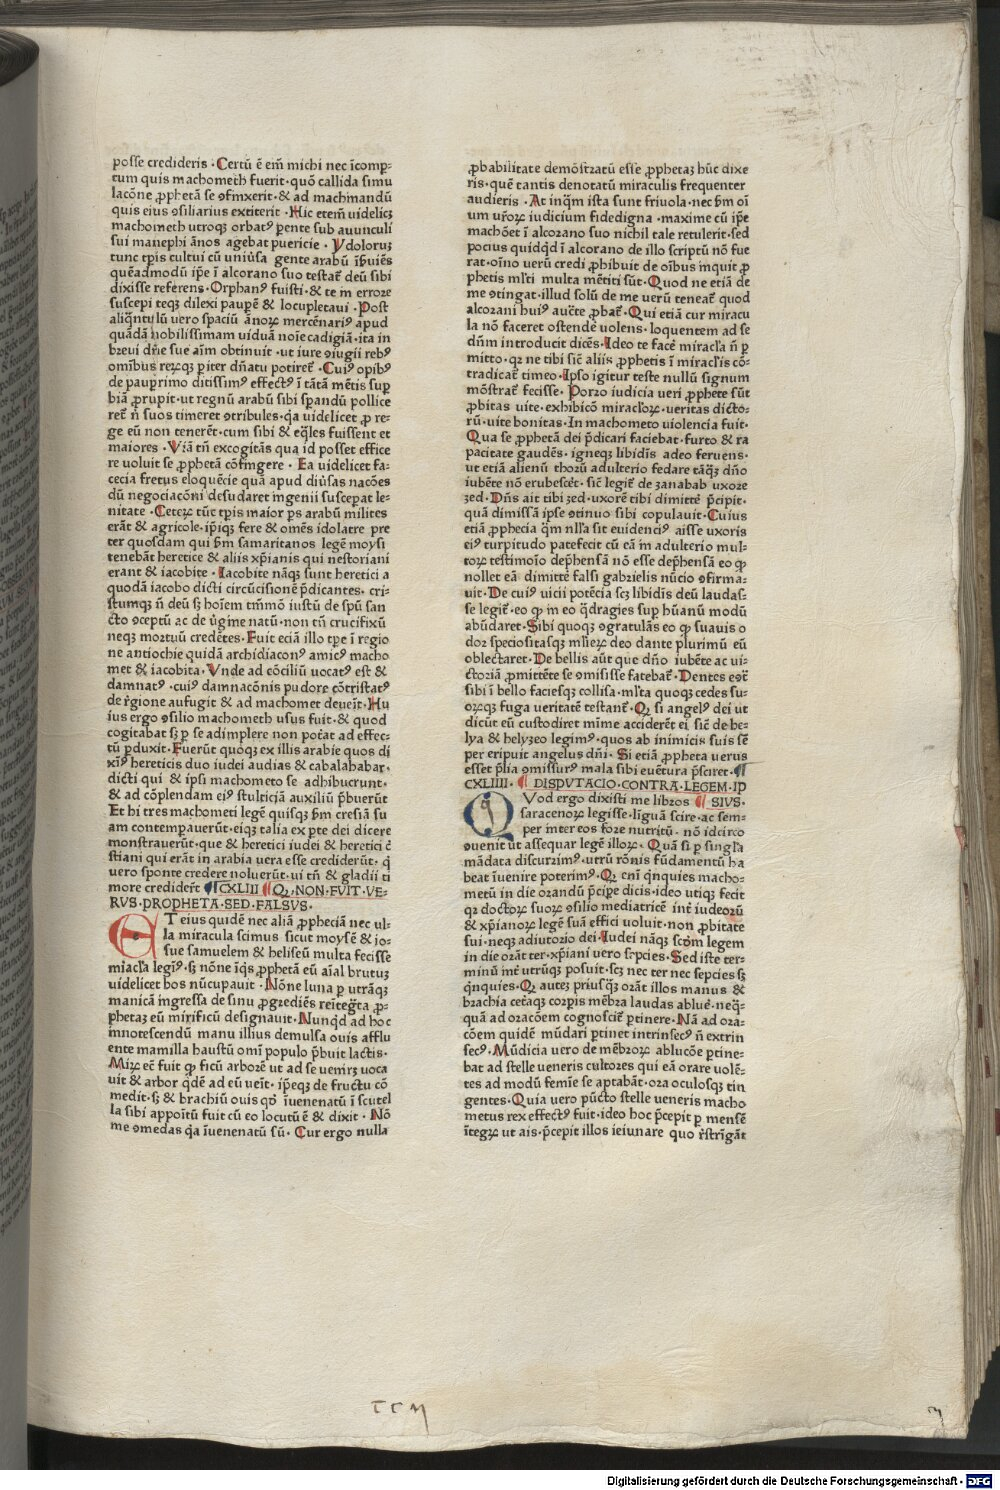 posse credideris · Certū ē em̄ michi nec īcomp-
tum quis machometh fuerit · quō callida simu
lacōne ꝓphetā se ꝯfinxerit · & ad machinandū
quis eius ꝯsiliarius extiterit · Hic etem̄ uidelicꝫ
machometh utroqꝫ orbatꝰ ꝑente sub auunculi
sui manephi ānos agebat puericie · Ydoloruꝫ
tunc tꝑis cultui cū uniũsa gente arabū īƀuiēs
quēadmodū ip̄e ī alcorano suo testat̄ deū sibi
dixisse referens · Orphanꝰ fuisti · & te in errore
suscepi teqꝫ dilexi pauꝑē & locupletaui · Post
aliqn̄tulū uero spaciū ānoꝝ mercēnariꝰ apud
quādā nobilissimam uiduā noīe cadigiā · ita in
breui dn̄e sue aīm obtinuit · ut iure ꝯiugii rebꝰ
omībus reꝝqꝫ ꝑiter dn̄atu potiret̄ · Cuiꝰ opibꝰ
de pauꝑrimo ditissimꝰ effectꝰ ī tātā mētis suꝑ
biā ꝓrupit · ut regnū arabū sibi spandū pollice
ret̄ n̄ suos timeret ꝯtribules · qa uidelicet ꝓ re-
ge eū non tenerēt · cum sibi & eq̄les fuissent et
maiores · Viā tn̄ excogitās qua id posset effice
re uoluit se ꝓphetā cōfingere · Ea uidelicet fa-
cecia fretus eloquēcie quā apud diũsas nacōes
dū negociacōni desudaret ingenii susceꝑat le-
nitate · Ceteꝝ tūc tꝑis maior ꝑs arabū milites
erāt & agricole · ip̄iqꝫ fere & omēs idolatre pre
ter quosdam qui ẜm samaritanos legē moysi
tenebāt heretice & aliis xp̄ianis qui nestoriani
erant & iacobite · Iacobite nāqꝫ sunt heretici a
quodā iacobo dicti circūcisionē p̄dicantes · cri-
stumqꝫ n̄ deū sꝫ hoīem tm̄mō iustū de spū san
cto ꝯceptū ac de ũgine natū · non tn̄ crucifixū
neqꝫ mortuū credētes · Fuit eciā illo tꝑe ī regio
ne antiochie quidā archidiaconꝰ amicꝰ macho
met & iacobita · Vnde ad cōciliū uocatꝰ est &
damnatꝰ · cuiꝰ damnacōnis pudore cōtristatꝰ
de r̄gione aufugit & ad machomet deueīt · Hu
ius ergo ꝯsilio machometh usus fuit · & quod
cogitabat sꝫ ꝑ se adimplere non pot̄at ad effec-
tū ꝑduxit · Fuerūt quoqꝫ ex illis arabie quos di
xīꝰ hereticis duo iudei audias & cabalahabar ·
dicti qui & ipsi machometo se adhibucrunt ·
& ad cōplendam eiꝰ stulticiā auxiliū p̄buerūt
Et hi tres machometi legē quisqꝫ ẜm cresiā su
am contempauerūt · eiqꝫ talia ex ꝑte dei dicere
monstrauerūt · que & heretici iudei & heretici c̄
stiani qui erāt in arabia uera esse crediderūt · q̇
uero sponte credere noluerūt · ui tn̄ & gladii ti
more credider̄t ¶CXLIII ¶Qꝫ · NON · FVIT · VE-
RVS · PROPHETA · SED · FALSVS ·
ET eius quidē nec aliā ꝓpheciā nec ul-
la miracula scimus sicut moysē & io-
sue samuelem & heliseū multa fecisse
miac̄la legīꝰ · sꝫ nōne īq̇s ꝓphetā eū aīal brutuꝫ
uidelicet bos nūcupauit · Nōne luna ꝑ utrāqꝫ
manicā ingressa de sinu ꝓgrediēs reītegr̄ta ꝓ-
phetaꝫ eū mirificū designauit · Nunqd ad hoc
innotescendū manu illius demulsa ouis afflu
ente mamilla haustū omī populo p̄buit lactis ·
Miꝝ ec̄ fuit qꝓ ficū arborē ut ad se uenirꝫ uoca
uit & arbor q̇dē ad eū ueīt · ip̄eqꝫ de fructu cō
medit · sꝫ & brachiū ouis qđ īuenenatū ī scutel
la sibi appoītū fuit cū eo locutū ē & dixit · Nō
me ꝯmedas qa īuenenatū sū · Cur ergo nulla
ꝓbabilitate demōstratū esse ꝓphetaꝫ hūc dixe
ris · quē tantis denotatū miraculis frequenter
audieris · At inqm̄ ista sunt friuola · nec ẜm oī
um ur̄oꝝ iudicium fidedigna · maxime cū ip̄e
machōet ī alcorano suo nichil tale retulerit · sed
pocius quidqd̄ ī alcorano de illo scriptū nō fue
rat · oīno uerū credi ꝓhibuit de oībus inquit ꝓ
phetis ml̄ti multa mētiti sūt · Quod ne etiā de
me ꝯtingat · illud solū de me uerū teneat̄ quod
alcorani huiꝰ auc̄te ꝓbat̄ · Qui etiā cur miracu
la nō faceret ostendē uolens · loquentem ad se
dn̄m introducit dicēs · Ideo te facē mirac̄la n̄ ꝑ
mitto · qꝛ ne tibi sic̄ aliis ꝓphetis ī mirac̄lis cō-
tradicat̄ timeo · Ipso igitur teste nullū signum
mōstrat̄ fecisse · Porro iudicia ueri ꝓphete sūt
ꝓbitas uite · exhibicō mirac̄loꝝ · ueritas dicto-
rū · uite bonitas · In machometo uiolencia fuit ·
Qua se ꝓphetā dei p̄dicari faciebat · furto & ra
pacitate gaudēs · igneqꝫ libidīs adeo feruens ·
ut etiā alienū thorū adulterio fedare tāqꝫ dn̄o
iubēte nō erubescēt · sic̄ legit̄ de zanabab uxore
zed · Dn̄s ait tibi zed · uxorē tibi dimitte p̄cipit ·
quā dimissā ipse ꝯtinuo sibi copulauit · Cuius
etiā ꝓphecia qm̄ nl̄la sit euidenciꝰ aisse uxoris
eiꝰ turpitudo patefecit cū eā in adulterio mul-
toꝝ testimoīo dep̄hensā nō esse dep̄hensā eo ꝙ
nollet eā dimittē falsi gabrielis nūcio ꝯfirma-
uit · De cuiꝰ uicii potēcia scꝫ libidīs deū laudas-
se legit̄ · eo ꝙ in eo q̇dragies suꝑ hūanū modū
abūdaret · Sibi quoqꝫ ꝯgratulās eo ꝙ suauis o
dor speciositasqꝫ ml̄ieꝝ deo dante plurimū eū
oblectaret · De bellis aūt que dn̄o iubēte ac ui-
ctoriā ꝓmittēte se ꝯmisisse fatebat̄ · Dentes eoꝛ̄
sibi ī bello faciesqꝫ collisa · ml̄ta quoqꝫ cedes su-
oꝝqꝫ fuga ueritatē testant̄ · Qꝫ si angelꝰ dei ut
dicūt eū custodiret mīme acciderēt ei sic̄ de he-
lya & helyzeo legimꝰ · quos ab inimicis suis sē
per eripuit angelus dn̄i · Si etiā ꝓpheta uerus
esset p̄lia ꝯmissurꝰ mala sibi euētura p̄sciret · ¶
CXLIIII · ¶ DISPVTACIO · CONTRA · LEGEM · IP
QVod ergo dixisti me libros ¶ SIVS ·
saracenoꝝ legisse · liguā scire · ac sem-
per inter eos fore nutritū · nō idcirco
ꝯuenit ut assequar legē illoꝝ · Quā si ꝑ singl̄a
mādata discurrimꝰ · utrū rōnis fūdamentū ha
beat īuenire poterimꝰ · Qꝫ cnī qnquies macho-
metū in die orandū p̄cipe dicis · ideo utiqꝫ fecit
qꝛ doctoꝝ suoꝝ ꝯsilio mediatricē int̄ iudeoꝛū
& xp̄ianoꝝ legē suā effici uoluit · non ꝓbitate
sui · neqꝫ adiutorio dei · Iudei nāqꝫ scđm legem
in die orāt ter · xp̄iani uero sepcies · Sed iste ter-
minū int̄ utrūqꝫ posuit · scꝫ nec ter nec sepcies sꝫ
qnquies · Qꝫ auteꝫ priusqꝫ orāt illos manus &
brachia cet̄aqꝫ corꝑis mēbra laudas ablue · neq̄-
quā ad oracōem cognoscit̄ ꝑtinere · Nā ad ora-
cōem quidē mūdari ꝑtinet intrinsecꝰ n̄ extrin
secꝰ · Mūdicia uero de mēbroꝝ ablucōe ꝑtine-
bat ad stelle ueneris cultores qui eā orare uolē-
tes ad modū femīe se aptabāt · ora oculosqꝫ tin
gentes · Quia uero pūcto stelle ueneris macho
metus rex effectꝰ fuit · ideo hoc p̄cepit ꝑ mensē
ītegꝝ ut ais · p̄cepit illos ieiunare quo r̄strīgāt